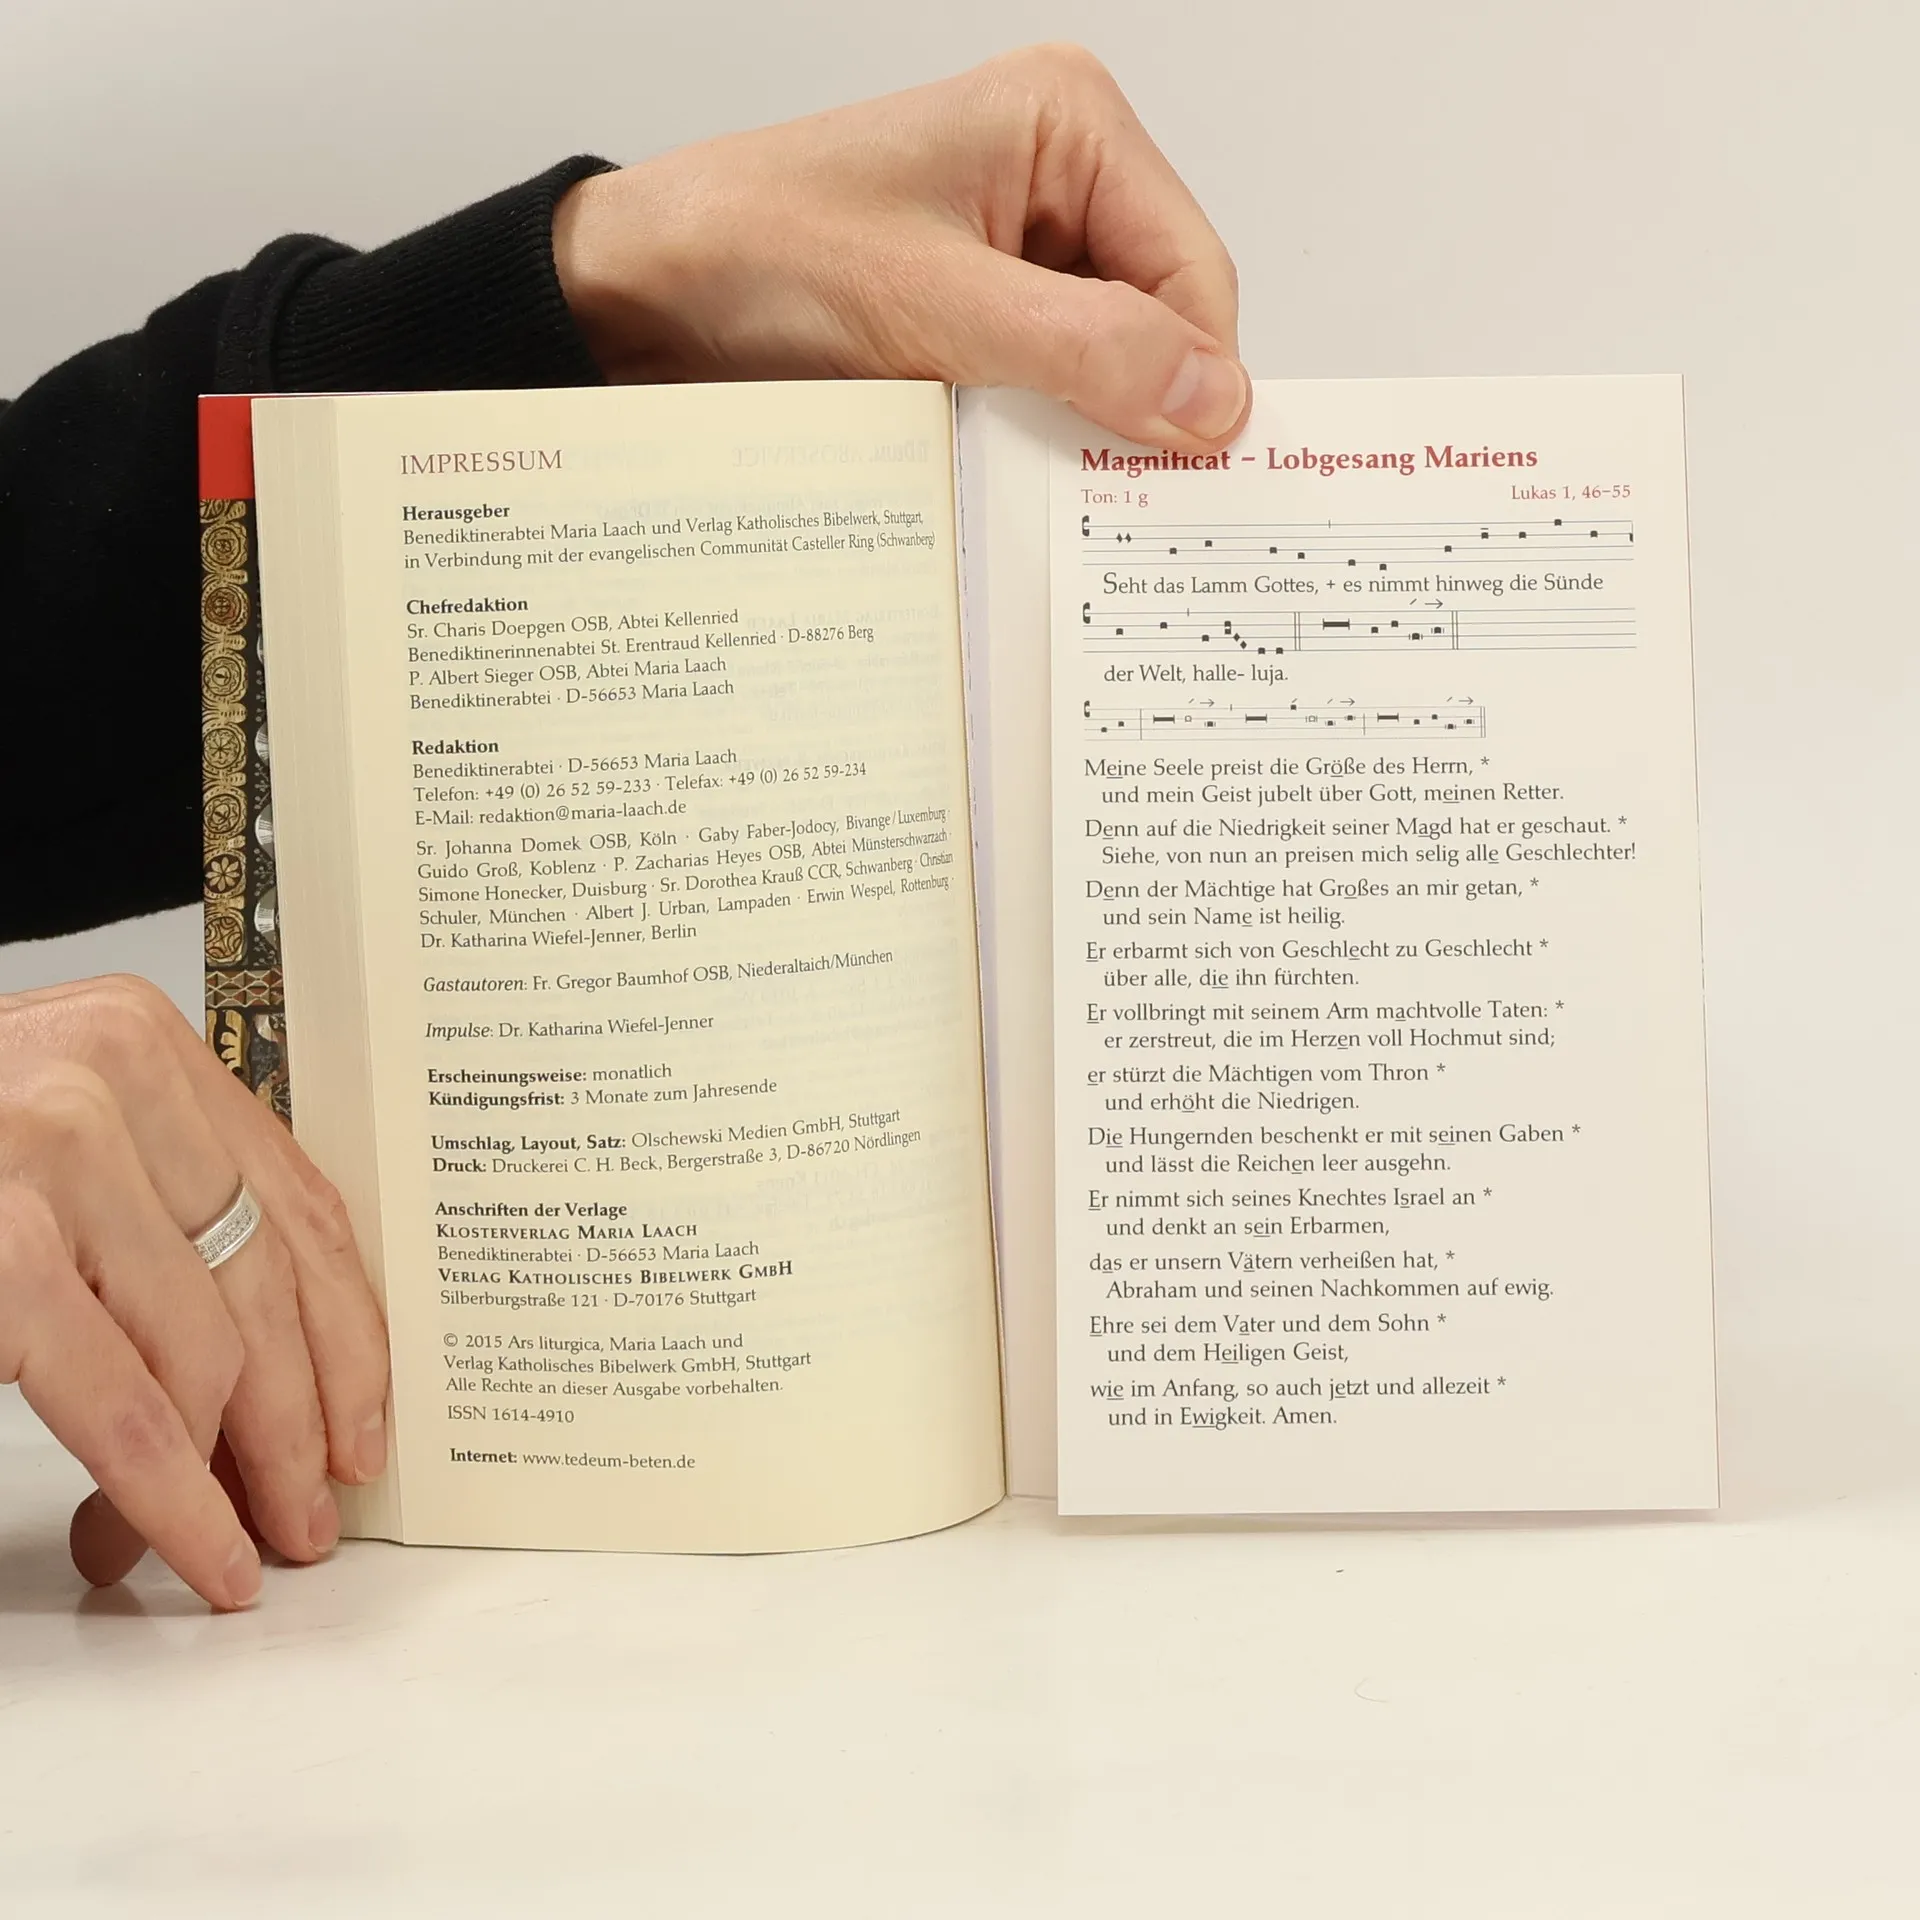 IMPRESSUM
Herausgeber
Benediktinerabtei Maria Laach und Verlag Katholisches Bibelwerk, Stuttgart,
in Verbindung mit der evangelischen Communität Casteller Ring (Schwanberg)
Chefredaktion
Sr. Charis Doepgen OSB, Abtei Kellenried
Benediktinerinnenabtei St. Erentraud Kellenried · D-88276 Berg
P. Albert Sieger OSB, Abtei Maria Laach
Benediktinerabtei · D-56653 Maria Laach
Redaktion
Benediktinerabtei · D-56653 Maria Laach
Telefon: +49 (0) 26 52 59-233 · Telefax: +49 (0) 26 52 59-234
E-Mail: redaktion@maria-laach.de
Sr. Johanna Domek OSB, Köln · Gaby Faber-Jodocy, Bivange/Luxemburg ·
Guido Groß, Koblenz · P. Zacharias Heyes OSB, Abtei Münsterschwarzach ·
Simone Honecker, Duisburg · Sr. Dorothea Krauß CCR, Schwanberg · Christian
Schuler, München · Albert J. Urban, Lampaden · Erwin Wespel, Rottenburg ·
Dr. Katharina Wiefel-Jenner, Berlin
Gastautoren: Fr. Gregor Baumhof OSB, Niederaltaich/München
Impulse: Dr. Katharina Wiefel-Jenner
Erscheinungsweise: monatlich
Kündigungsfrist: 3 Monate zum Jahresende
Umschlag, Layout, Satz: Olschewski Medien GmbH, Stuttgart
Druck: Druckerei C. H. Beck, Bergerstraße 3, D-86720 Nördlingen
Anschriften der Verlage
KLOSTERVERLAG MARIA LAACH
Benediktinerabtei · D-56653 Maria Laach
VERLAG KATHOLISCHES BIBELWERK GMBH
Silberburgstraße 121 · D-70176 Stuttgart
© 2015 Ars liturgica, Maria Laach und
Verlag Katholisches Bibelwerk GmbH, Stuttgart
Alle Rechte an dieser Ausgabe vorbehalten.
ISSN 1614-4910
Internet: www.tedeum-beten.de
Magnificat – Lobgesang Mariens
Ton: 1 g Lukas 1, 46–55
Seht das Lamm Gottes, + es nimmt hinweg die Sünde
der Welt, halle- luja.
Meine Seele preist die Größe des Herrn, *
und mein Geist jubelt über Gott, meinen Retter.
Denn auf die Niedrigkeit seiner Magd hat er geschaut. *
Siehe, von nun an preisen mich selig alle Geschlechter!
Denn der Mächtige hat Großes an mir getan, *
und sein Name ist heilig.
Er erbarmt sich von Geschlecht zu Geschlecht *
über alle, die ihn fürchten.
Er vollbringt mit seinem Arm machtvolle Taten: *
er zerstreut, die im Herzen voll Hochmut sind;
er stürzt die Mächtigen vom Thron *
und erhöht die Niedrigen.
Die Hungernden beschenkt er mit seinen Gaben *
und lässt die Reichen leer ausgehn.
Er nimmt sich seines Knechtes Israel an *
und denkt an sein Erbarmen,
das er unsern Vätern verheißen hat, *
Abraham und seinen Nachkommen auf ewig.
Ehre sei dem Vater und dem Sohn *
und dem Heiligen Geist,
wie im Anfang, so auch jetzt und allezeit *
und in Ewigkeit. Amen.